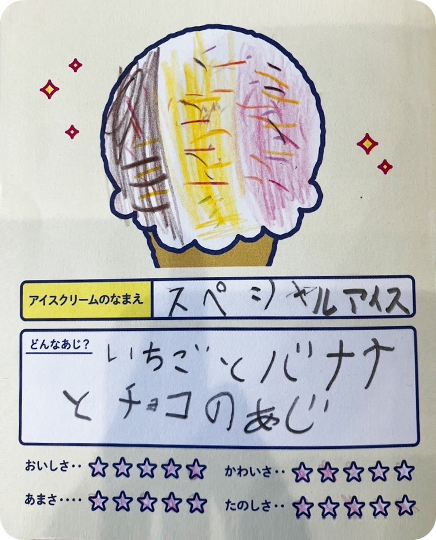 アイスクリームのなまえ スペシャルアイス
どんなあじ?
いちごとバナナ
とチョコのあじ
おいしさ‥ ☆☆☆☆☆ かわいさ‥ ☆☆☆☆☆
あまさ‥‥ ☆☆☆☆☆ たのしさ‥ ☆☆☆☆☆